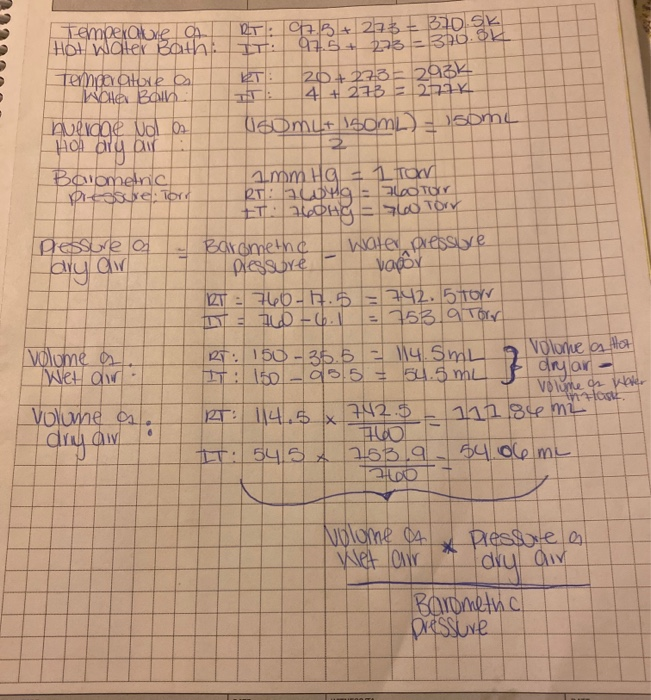 Temperature of RT: 97.5 + 273 = 370.5K
Hot Water Bath: IT: 97.5 + 273 = 370.5K
Temperature of RT: 20 + 273 = 293K
Water Bath: IT: 4 + 273 = 277K
Average Vol of (150mL + 150mL) = 150mL
Hot dry air : 2
Barometric 1mmHg = 1 Torr
pressure: Torr RT: 760Hg = 760Torr
IT: 760Hg = 760 Torr
Pressure of = Barometric - Water pressure
dry air pressure vapor
RT = 760 - 17.5 = 742.5 Torr
IT = 760 - 6.1 = 753.9 Torr
Volume of RT: 150 - 35.5 = 114.5mL } Volume of Hot
Wet air: IT: 150 - 95.5 = 54.5mL dry air -
Volume of Water
in flask.
Volume of : RT: 114.5 x 742.5 = 111.86 mL
dry air 760
IT: 54.5 x 753.9 = 54.06 mL
760
Volume of * Pressure of
Wet air dry air
Barometric
pressure